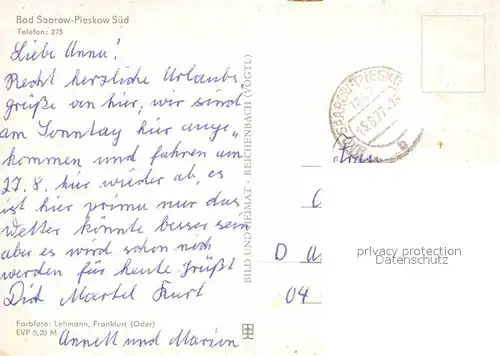 Bad Saarow-Pieskow Süd
Telefon: 275
Liebe Anna!
Recht herzliche Urlaubs„
grüße von hier, wir sind
am Sonntag hier ange„
kommen und fahren am
27.8. hier wieder ab, es
ist hier prima nur das
Wetter könnte besser sein
aber es wird schon noch
werden für heute grüßt
Dich Martel Kurt
Annett und Marion
Farbfoto: Lehmann, Frankfurt (Oder)
EVP 0,20 M
BILD UND HEIMAT · REICHENBACH (VOGTL)
SAAROW-PIESKOW
Frau
D
04
privacy protection
Datenschutz